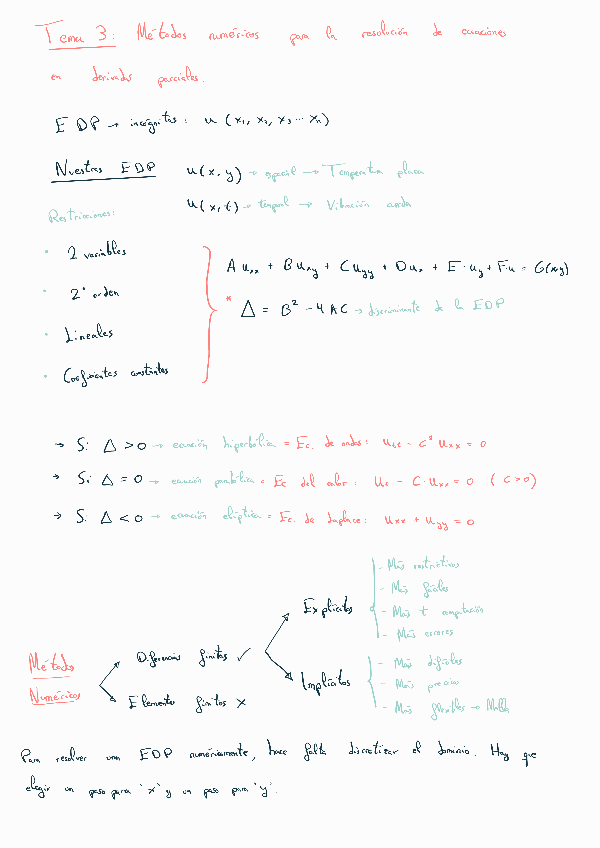 Tema 3: Métodos numéricos para la resolución de ecuaciones
en derivadas parciales.
EDP → incógnitas: u (x₁, x₂, x₃ ... xₙ)
Nuestras EDP u(x, y) → espacial → Temperatura placa
u(x, t) → temporal → Vibración cuerda
Restricciones:
• 2 variables
• 2º orden
• Lineales
• Coeficientes constantes
A uxx + B uxy + C uyy + D ux + E · uy + F · u = G(x,y)
* Δ = B² - 4AC → discriminante de la EDP
→ Si Δ > 0 → ecuación hiperbólica = Ec. de ondas: utt - C² uxx = 0
→ Si Δ = 0 → ecuación parabólica = Ec del calor: ut - C · uxx = 0 (C > 0)
→ Si Δ < 0 → ecuación elíptica = Ec. de Laplace: uxx + uyy = 0
Métodos
Numéricos
Diferencias finitas ✓
Elementos finitos ×
Explícitos
- Más restrictivos
- Más fáciles
- Más t computación
- Más errores
Implícitos
- Más difíciles
- Más precisos
- Más flexibles → Malla
Para resolver una EDP numéricamente, hace falta discretizar el dominio. Hay que
elegir un paso para 'x' y un paso para 'y'.